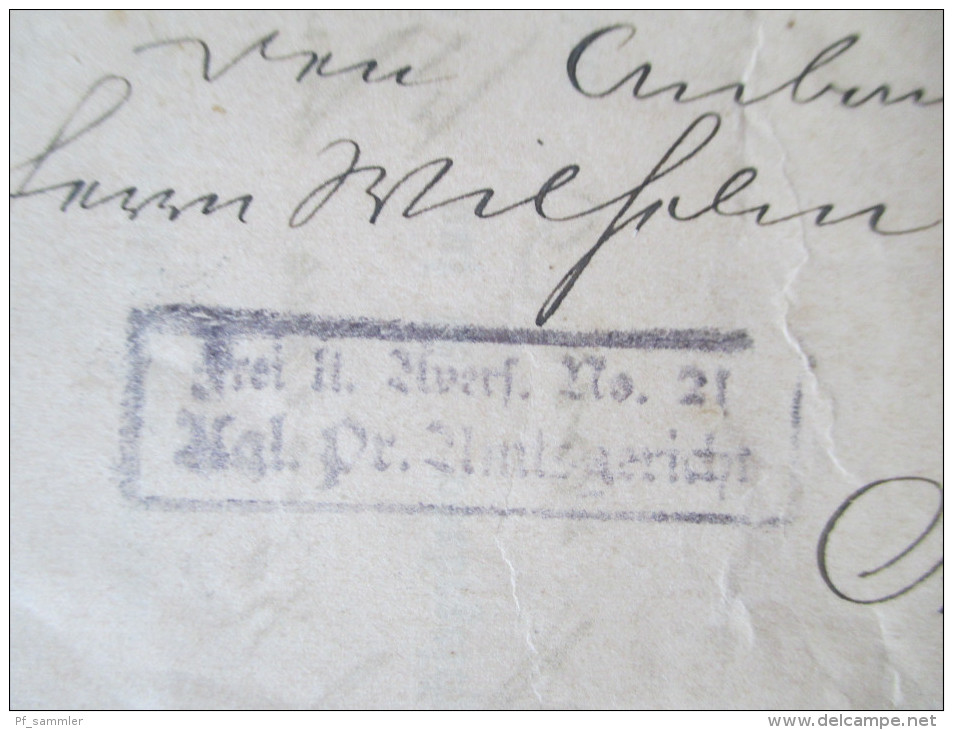 den
Herrn Wilhelm
Frei lt. Avers. No. 21
Kgl. Pr. Amtsgericht
Pf_sammler
www.delcampe.net